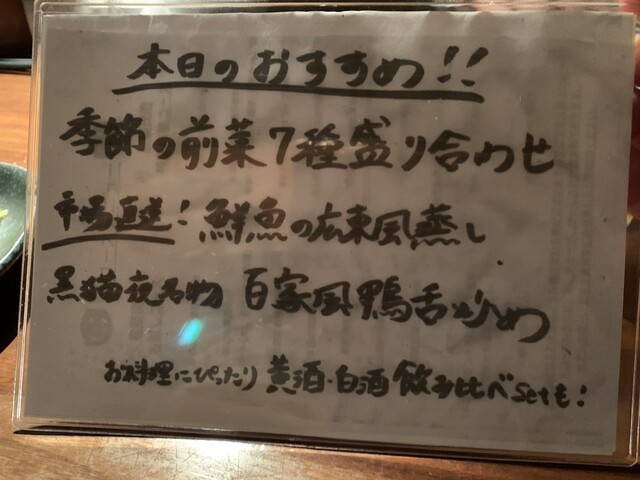 本日のおすすめ!!
季節の前菜7種盛り合わせ
市場直送!鮮魚の広東風蒸し
黒猫夜名物 百家風鴨舌炒め
お料理にぴったり 黄酒・白酒 飲み比べsetも!